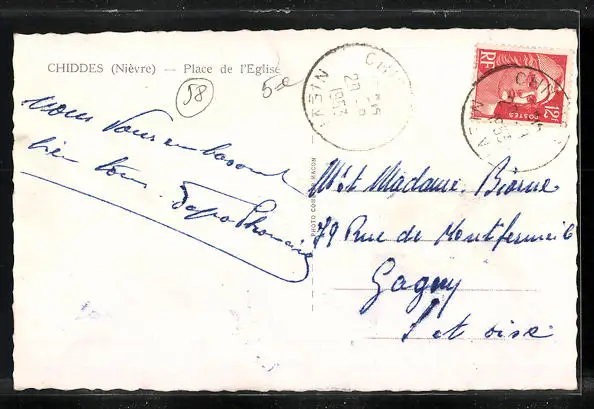 CHIDDES (Nièvre) — Place de l'Eglise
58
50
nous vous embrassons
bien tous.
PHOTO COMBIER MACON
CHIDDES
1953
NIEVRE
RF
12F
POSTES
Mr et Madame Biorne
79 Rue de Montfermeil
Gagny
S et oise